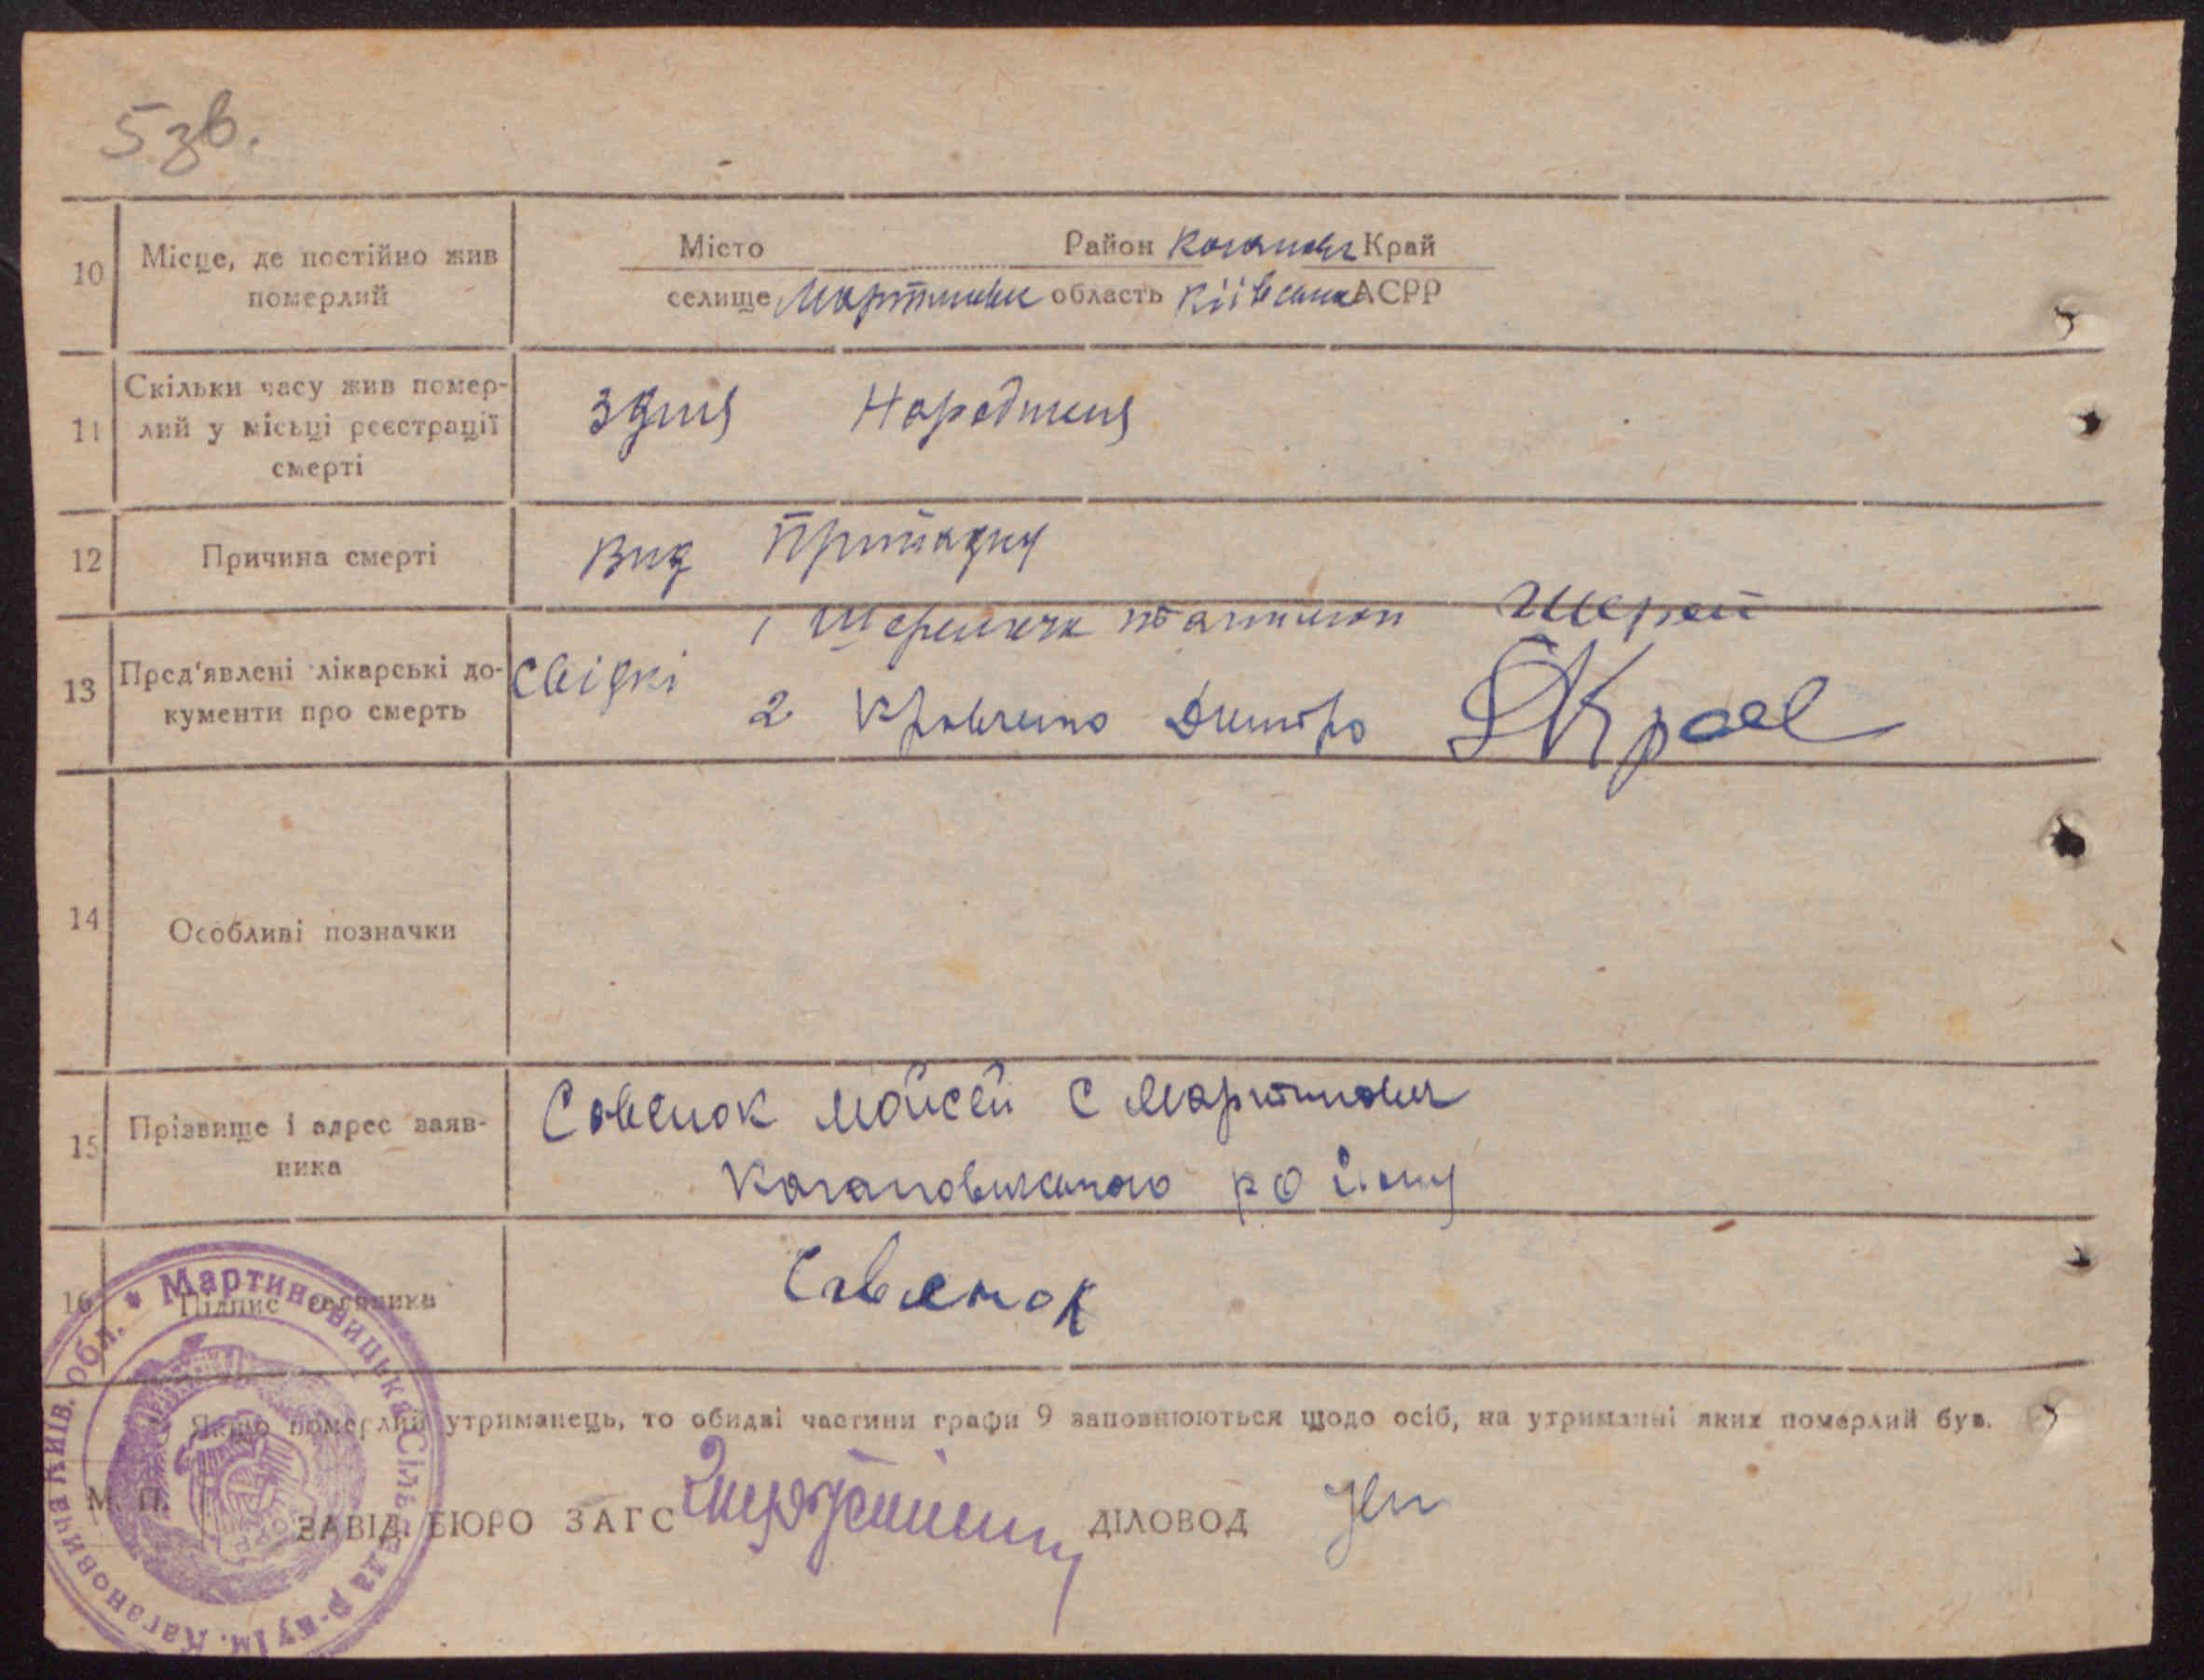 5 зв.
10 Місце, де постійно жив померлий
Місто Район Каганович Край
селище Мартиновичі область Київська АСРР
11 Скільки часу жив помер-
лий у місьці реєстрації
смерті
Здня Народженя
12 Причина смерті
Вид Припадку
13 Пред'явлені лікарські до-
кументи про смерть
свідкі
1 Шереметя
2 Кравченко Дмитро ДКрав
14 Особливі позначки
15 Прізвище і адрес заяв-
ника
Савенок Мойсей с Мартинович
Кагановичського району
16 Підпис заявника
Савенок
Якщо померлий утриманець, то обидві частини графи 9 заповнюються щодо осіб, на утриманні яких померлий був.
М. П.
ЗАВІД. БЮРО ЗАГС ДІЛОВОД
Мартиновицька Сільрада р-ну ім. Кагановича Київ. обл.